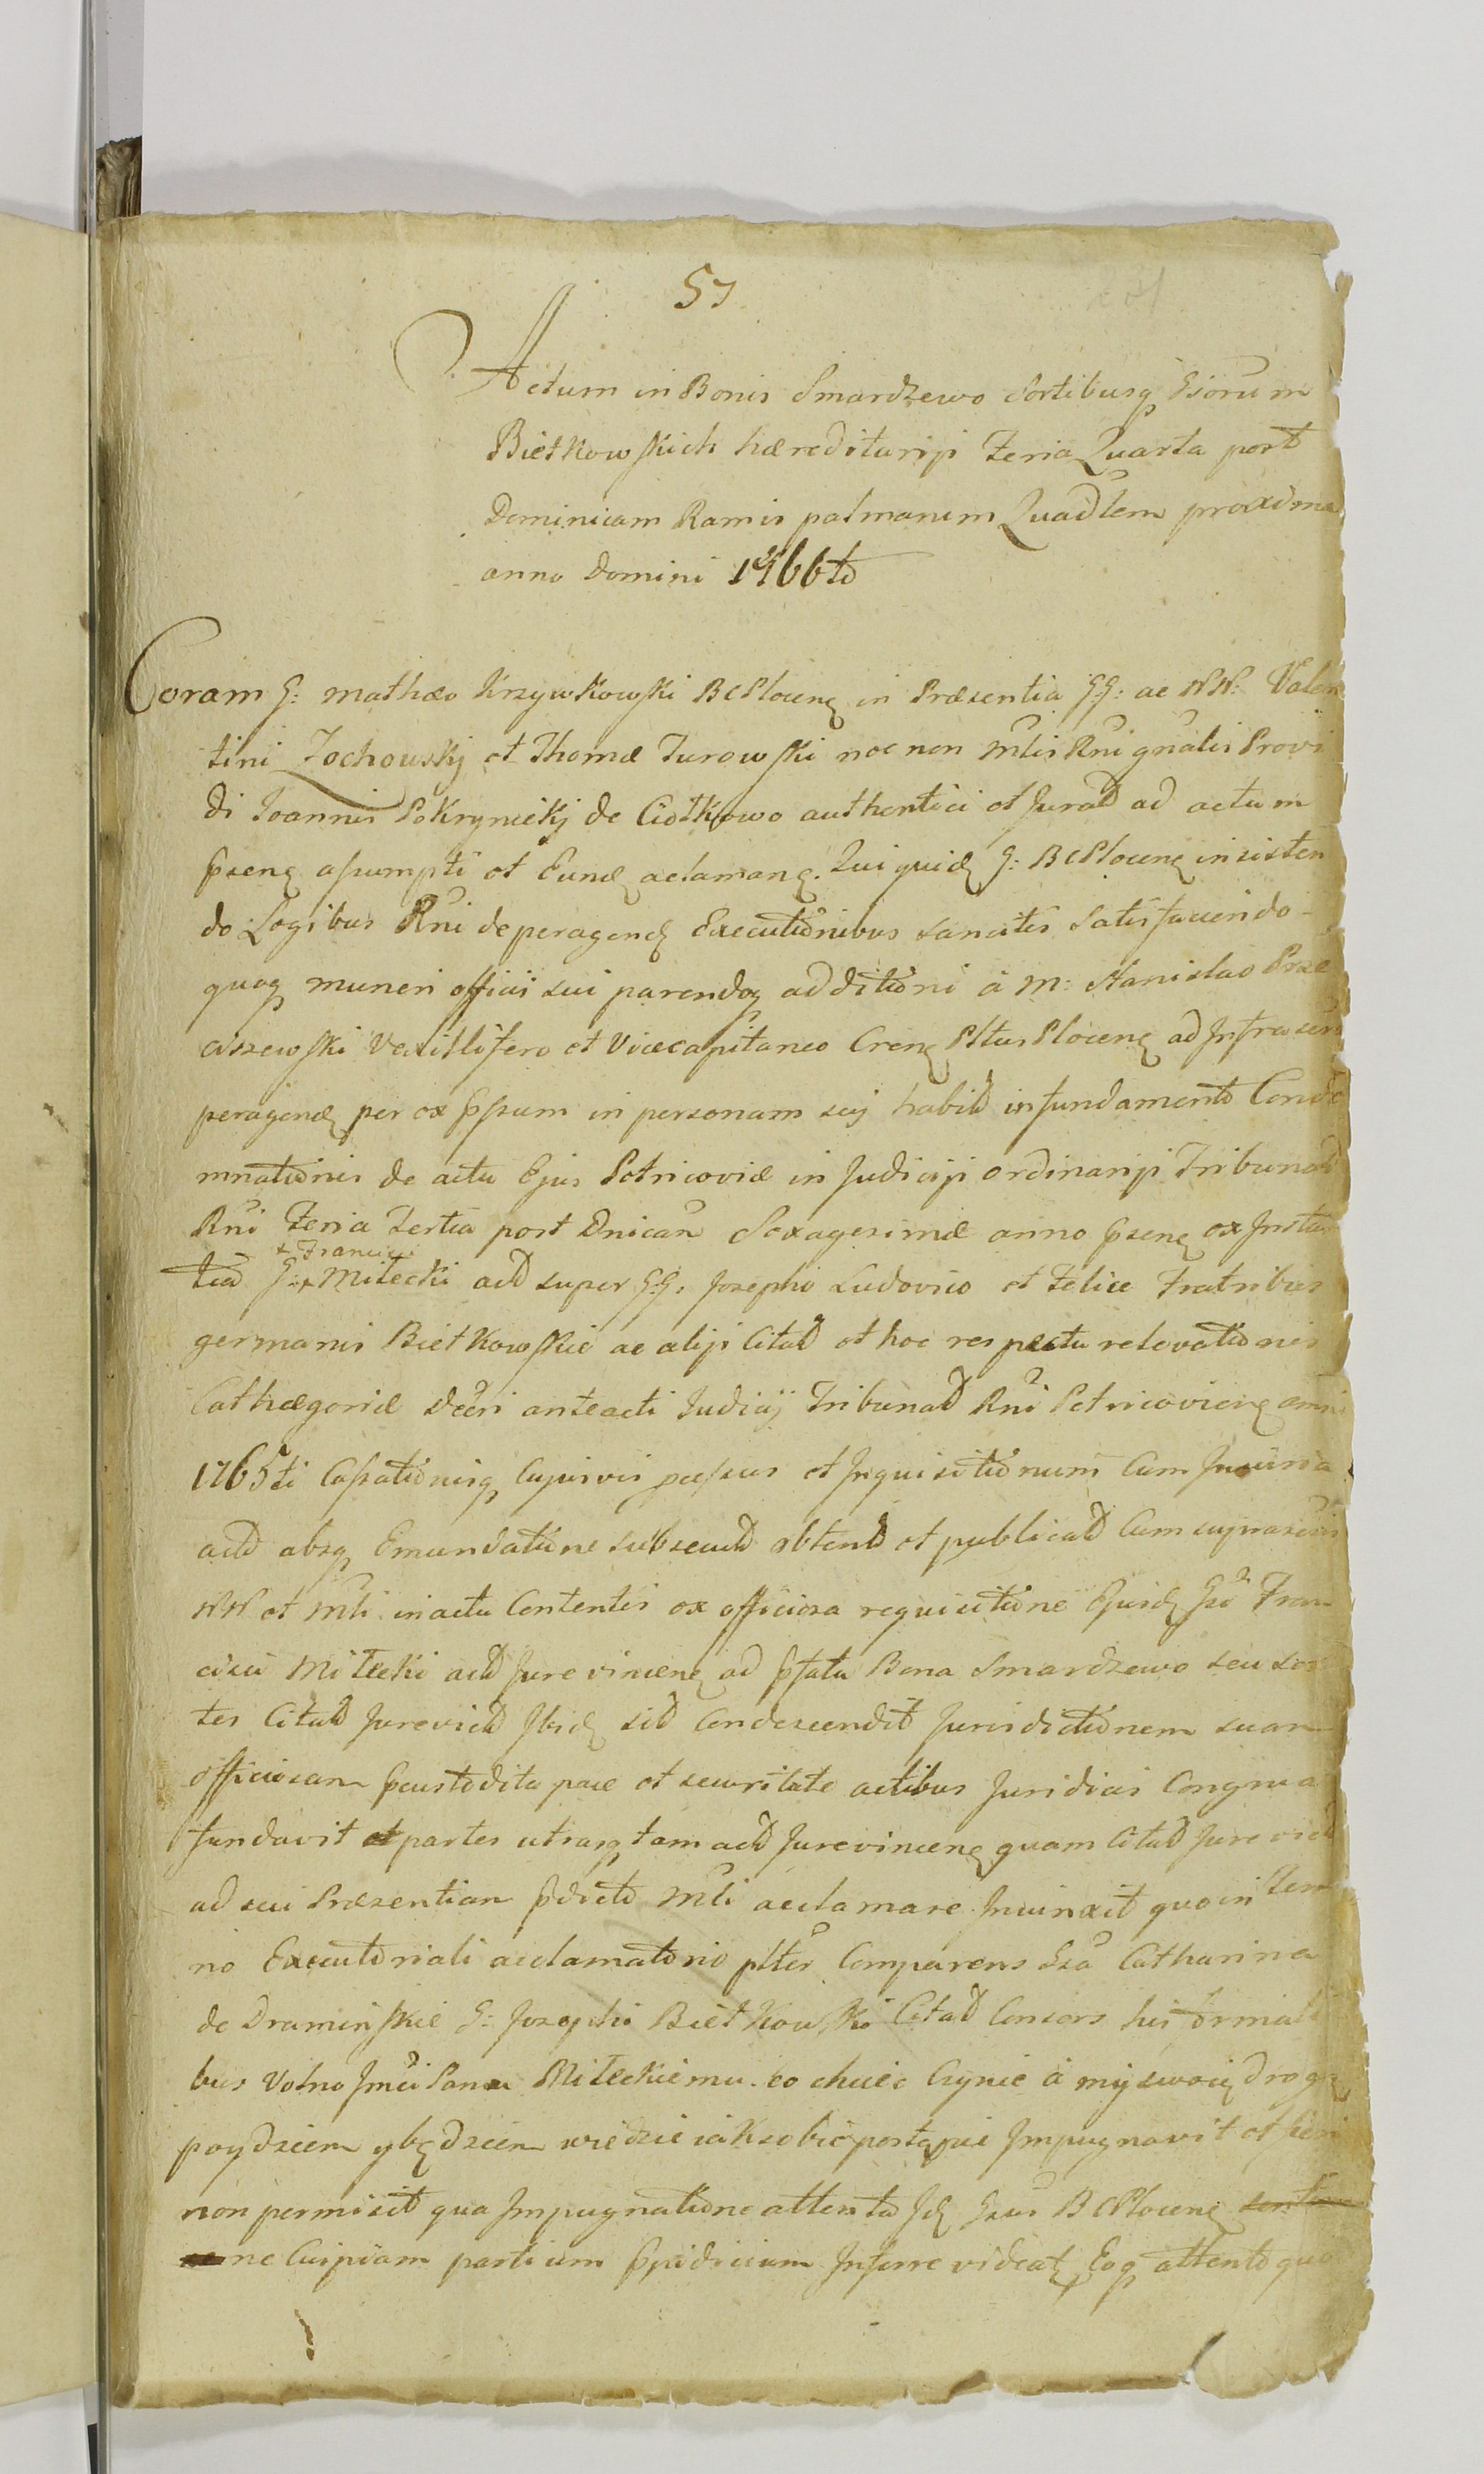 57
Actum in Bonis Smardzewo Sortibusq Gsorum
Bietkowskich hæreditariji Feria Quarta post
Dominicam Ramis palmarum Quadlem proxima
anno Domini 1766to
Coram G: Mathæo Krzywkowski BCPlocenς in Præsentia GG: ac NN: Valen
tini Zochowskj et Thomæ Turowski nec non Mlis Rni gnalis Provi
di Joannis Pokrynickj de Ciotkowo authentici et Jurad ad actum
pzenς assumpti et Eundς aclamanς. Qui quidς G: BCPlocenς insisten
do Legibus Rni de peragendς Executionibus sancitis satisfaciendo
quoq muneri officii sui parendoq additioni a M: Stanislao Prze
ciszewski Vexillifero et Vicecapitaneo Crenς Pltus Plocenς ad Infrascri
peragendς per ex pssum in personam suj habitd in fundamento Conde
mnationis de actu Ejus Petricoviæ in Judiciji ordinariji Tribunad
Rni Feria Tertia post Dnicam Sexagesimæ anno pzenς ex Insta
tiad G: + Milecki actd super GG: Josepho Ludovico et Felice Fratribus
+ Francisci
germanis Bietkowskie ac aliji Citatd et hoc respectu relevationis
Cathægoriæ Decri anteacti Judicij Tribunad Rni Petricovienς anni
1765ti Cassationisq Cujusvis pcessus et Inquisitionum Cum Injuria
actd absq Emundatione subsecutd obtentd et publicatd Cum suprascriis
NN et Mli in actu Contentis ex officiosa requisitione Ejusdς Gsi Fran
cisci Milecki actd Jurevincenς ad pfata Bona Smardzewo seu sor
tes Citatd Jurevictd Ibidς sitd Condescendit Jurisdictionem suam
officiosam pcustodita pace et securitate actibus Juridicis Congrua
fundavit et partes utrasq tam actd Jurevincenς quam Citatd Jurevictd
ad sui Præsentiam pdicto Mli acclamare Injunxit quo in Termi
no Executoriali acclamatorio plter Comparens Gsa Catharina
de Draminskie G: Josephi Bietkowski Citatd Consors his formali
bus Volno Jmci Panu Mileckiemu co chciec Czynic a my swoię drogą
poydziem y będziem wiedzie iak sobie postąpic Impugnavit et fieri
non permisit qua Impugnatione attenta Idς Gsus BCPlocenς
ne Cuipiam partium ppidicium Inferre videatς Eoq attento quo